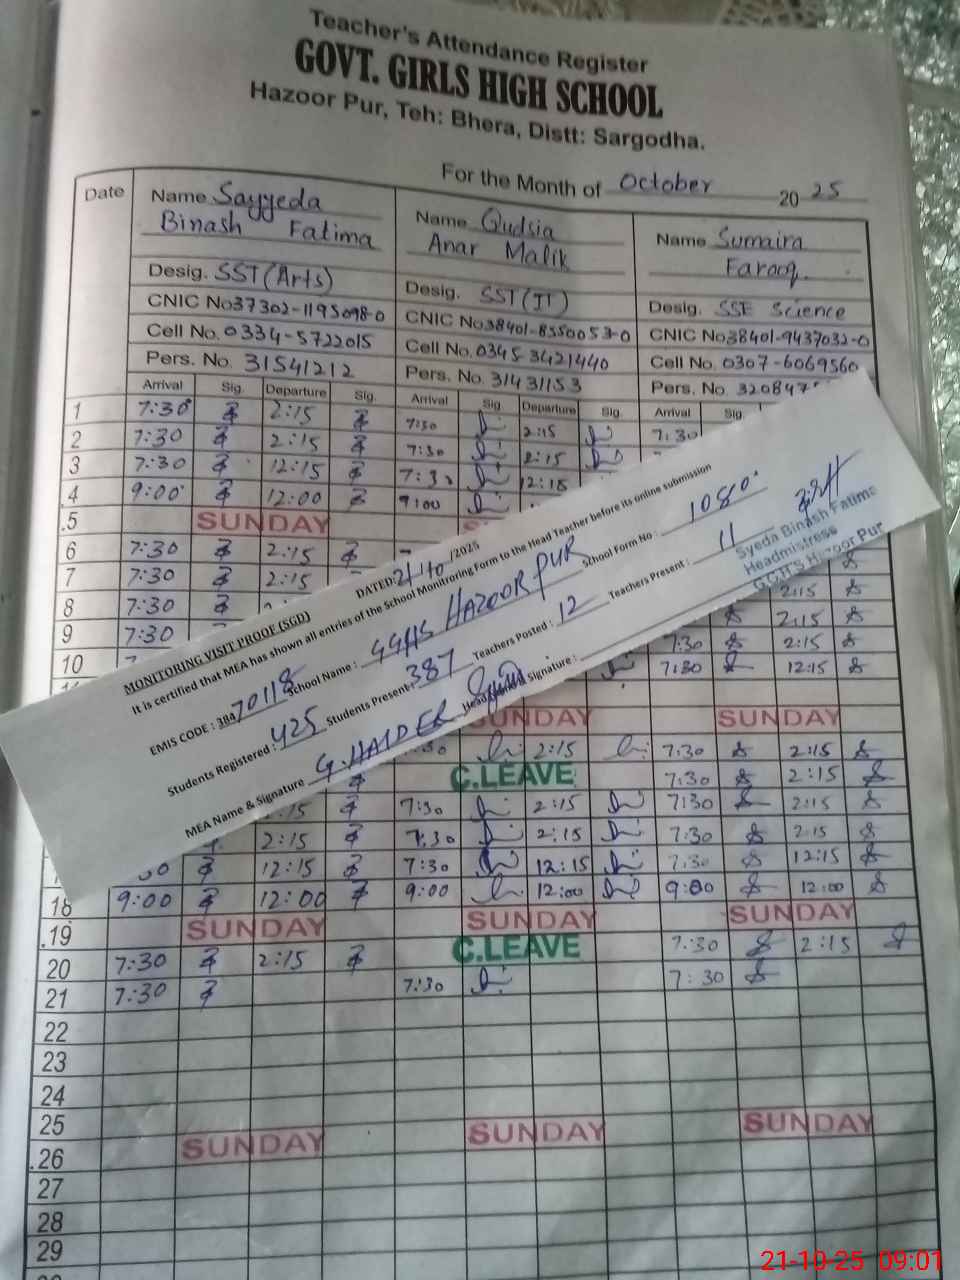 Teacher's Attendance Register
GOVT. GIRLS HIGH SCHOOL
Hazoor Pur, Teh: Bhera, Distt: Sargodha.
For the Month of October 2025
Date
Name Sayyeda Binash Fatima
Desig. SST (Arts)
CNIC No 37302-1195098-0
Cell No. 0334-5722015
Pers. No. 31541212
Name Qudsia Anar Malik
Desig. SST (IT)
CNIC No 38401-8550053-0
Cell No. 0345 3421440
Pers. No. 31431153
Name Sumaira Farooq.
Desig. SSE Science
CNIC No 38401-9437032-0
Cell No. 0307-6069560
Pers. No 320847
Arrival Sig. Departure Sig. Arrival Sig Departure Sig. Arrival Sig.
1 7:30 2:15 7:30 2:15
2 7:30 2:15 7:30 2:15 7:30
3 7:30 12:15 7:30 12:15
4 9:00 12:00 9:00
5 SUNDAY
6 7:30 2:15
7 7:30 2:15
8 7:30 2:15
9 7:30 2:15
10 7:30 2:15
7:30 12:15
MONITORING VISIT PROOF (SGD) DATED: 21/10/2025
It is certified that MEA has shown all entries of the School Monitroring Form to the Head Teacher before its online submission
EMIS CODE : 38470118 School Name : GGHS HAZOOR PUR School Form No : 1080
Students Registered : 425 Students Present : 387 Teachers Posted : 12 Teachers Present : 11
MEA Name & Signature G. HAIDER Signature :
Syeda Binash Fatima
Headmistress
SUNDAY SUNDAY
7:30 2:15 7:30 2:15
C.LEAVE 7:30 2:15
7:30 2:15 7:30 2:15
2:15 7:30 2:15 7:30 2:15
12:15 7:30 12:15 7:30 12:15
18 9:00 12:00 9:00 12:00 9:00 12:00
19 SUNDAY SUNDAY SUNDAY
20 7:30 2:15 C.LEAVE 7:30 2:15
21 7:30 7:30 7:30
22
23
24
25
26 SUNDAY SUNDAY SUNDAY
27
28
29
21-10-25 09:01